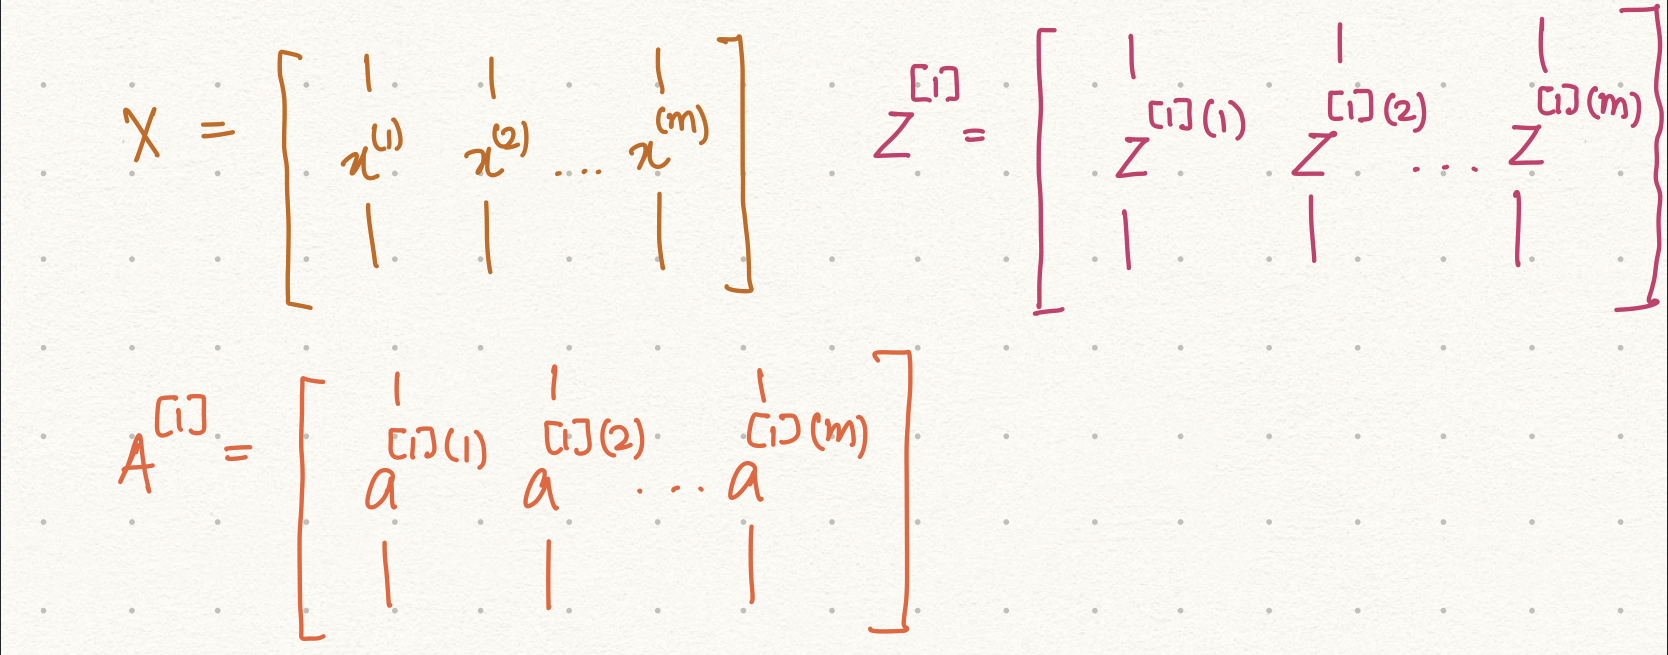 X = [ x^(1) x^(2) ... x^(m) ]
Z^[1] = [ z^[1](1) z^[1](2) ... z^[1](m) ]
A^[1] = [ a^[1](1) a^[1](2) ... a^[1](m) ]